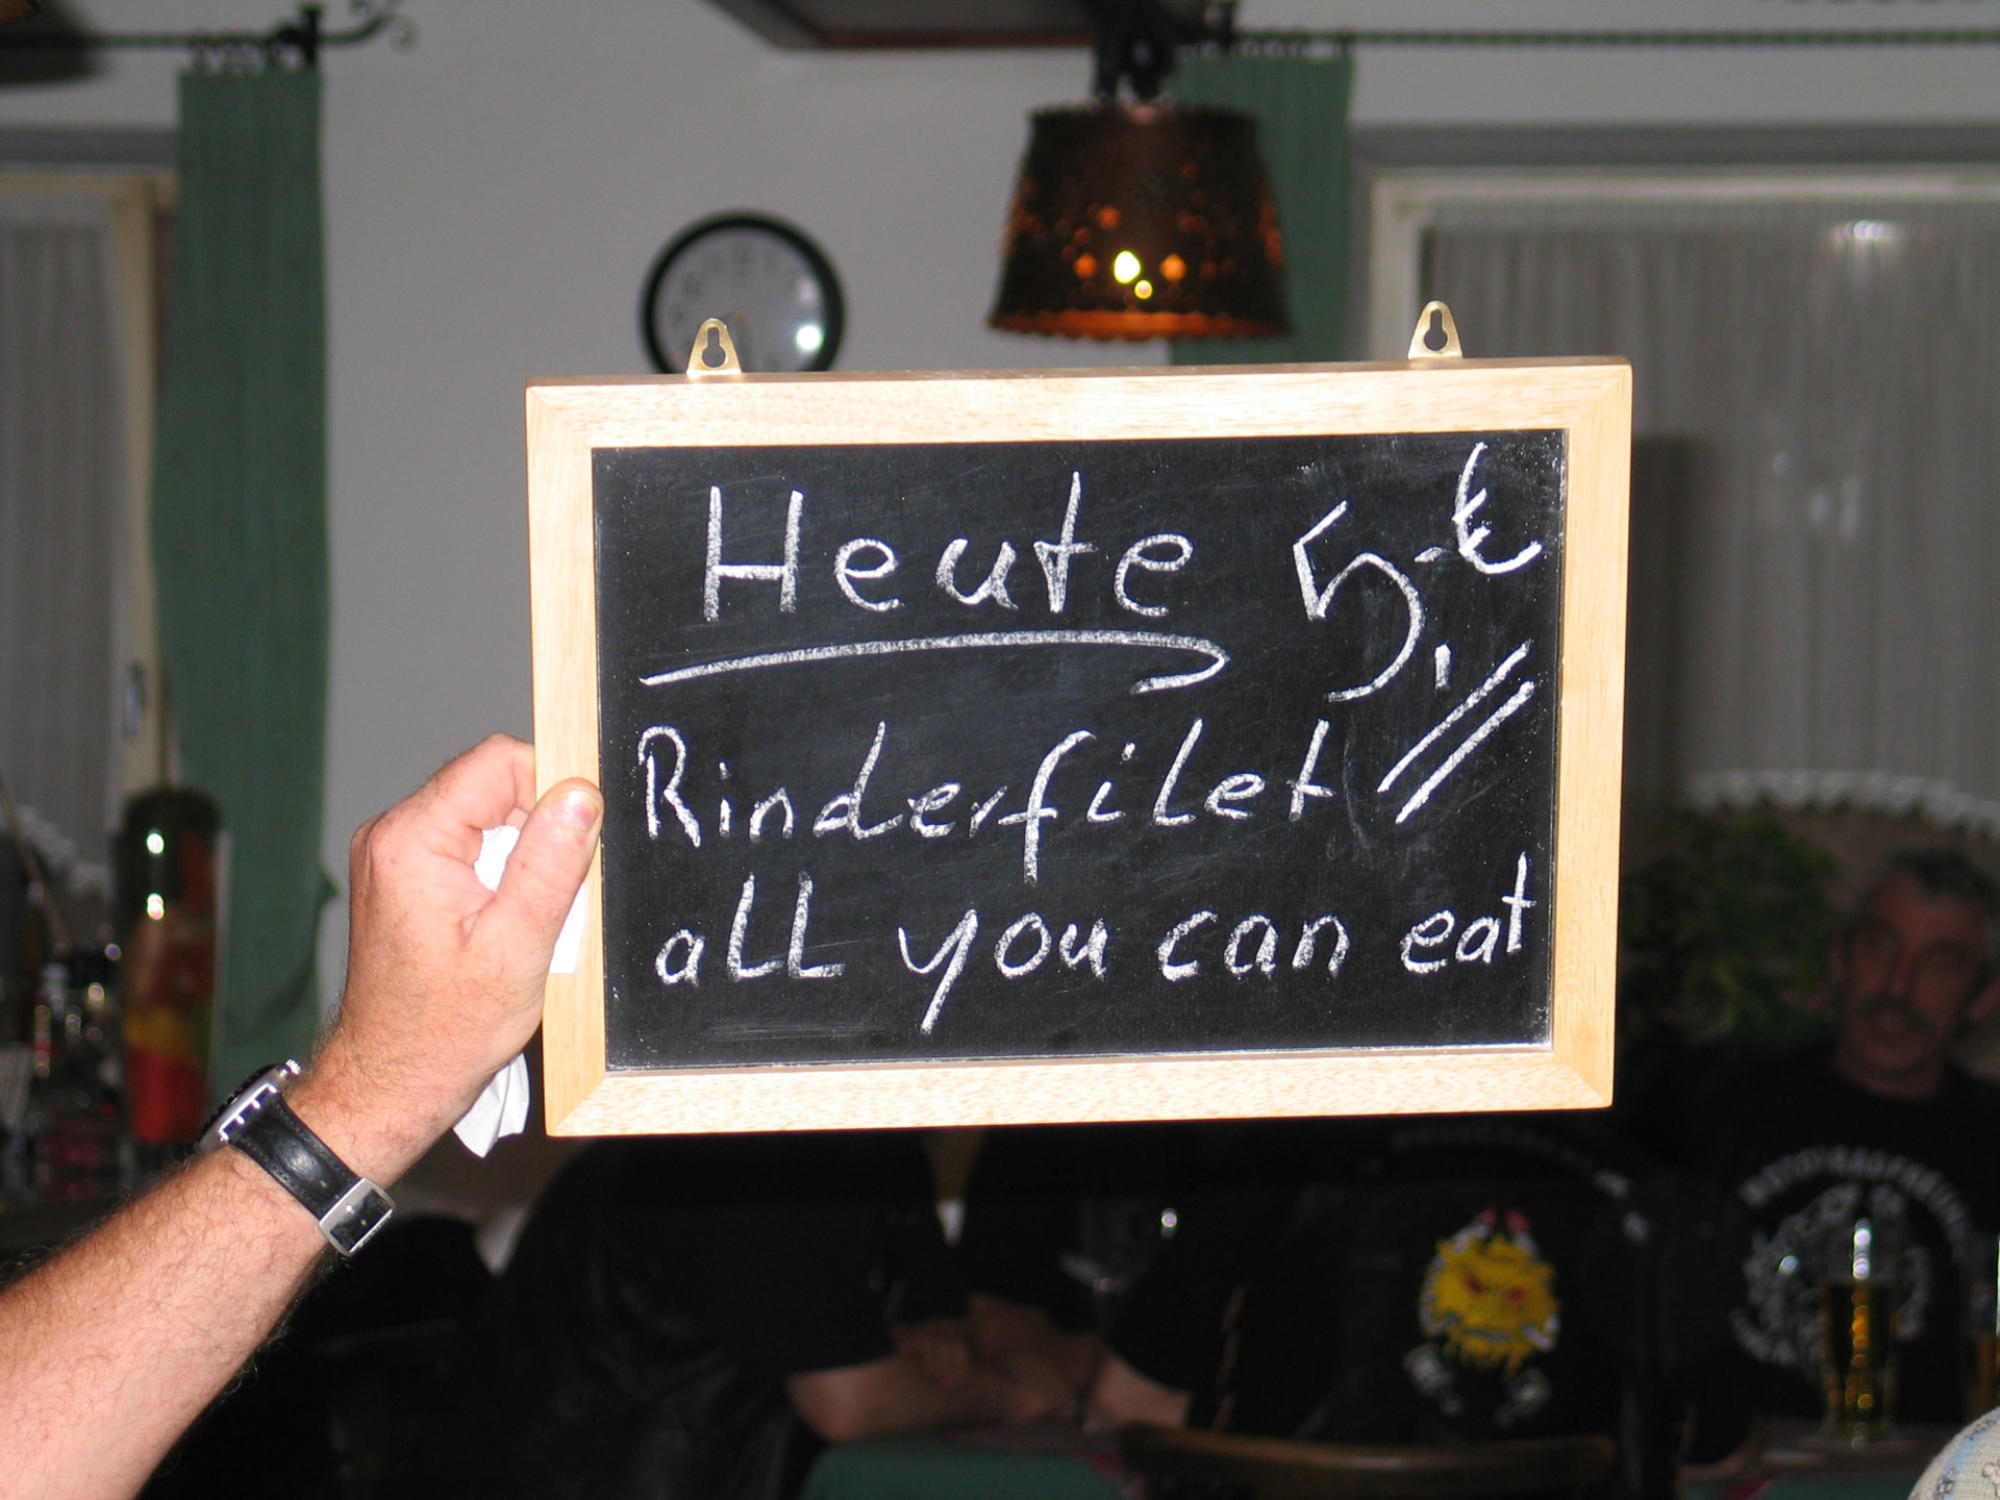 Heute 5,-€
Rinderfilet
all you can eat